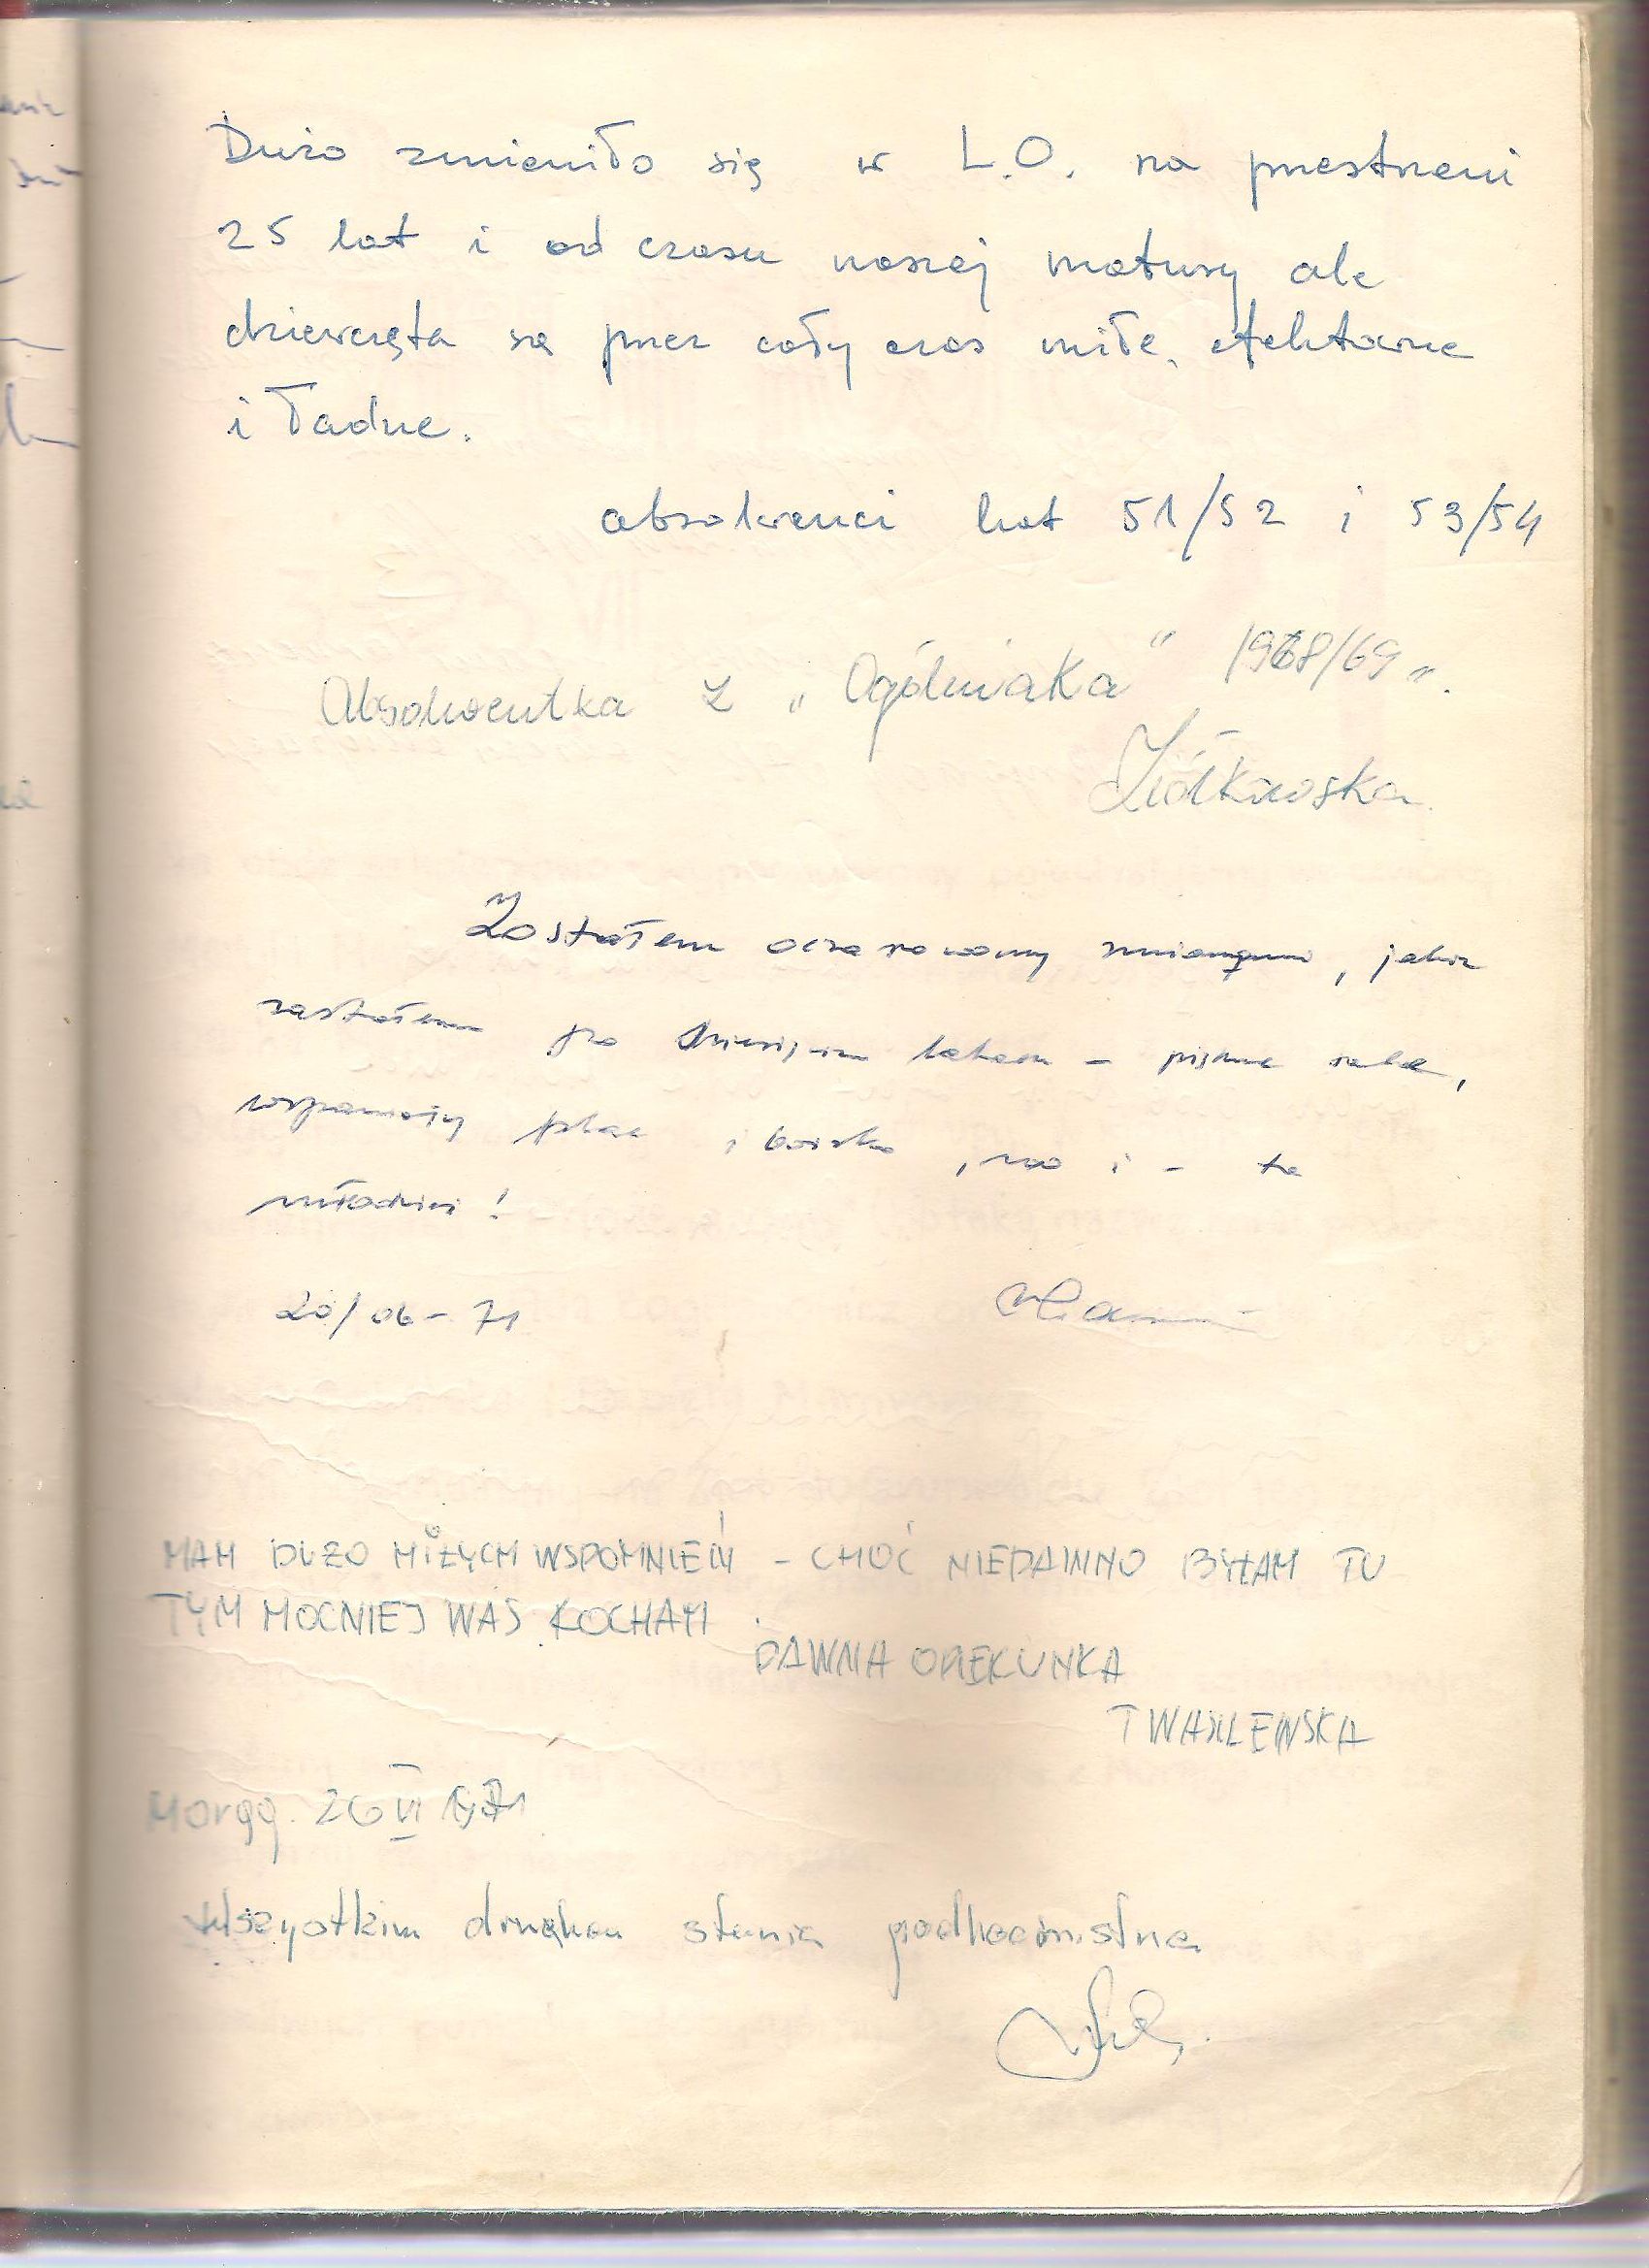 Dużo zmieniło się w L.O. na przestrzeni
25 lat i od czasu naszej matury ale
dziewczęta są przez cały czas miłe, efektowne
i ładne.
absolwenci lat 51/52 i 53/54
Absolwentka z „Ogólniaka" 1968/69".
Ziółkowska
Zostałem oczarowany zmianami, jakie
zastałem po dziesięciu latach – piękne sale,
wspaniały plac i boisko, no i – ta
młodzież!
20/06 – 71
MAM DUZO MIŁYCH WSPOMNIEŃ – CHOĆ NIEDAWNO BYŁAM TU
TYM MOCNIEJ WAS KOCHAM.
DAWNA OPIEKUNKA
T WASILEWSKA
Morąg. 20 VI 1971
Wszystkim druhom stania podharcmistrz